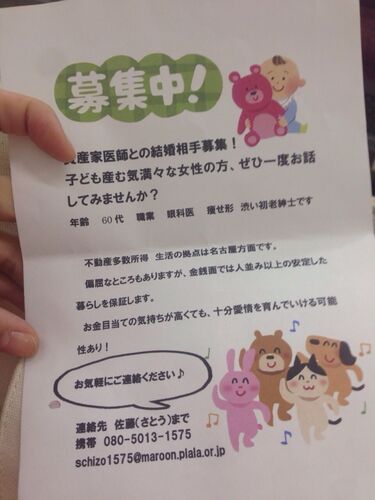 募集中!
産家医師との結婚相手募集!
子ども産む気満々な女性の方、ぜひ一度お話
してみませんか?
年齢 60代 職業 眼科医 痩せ形 渋い初老紳士です
不動産多数所得 生活の拠点は名古屋方面です。
偏屈なところもありますが、金銭面では人並み以上の安定した
暮らしを保証します。
お金目当ての気持ちが高くても、十分愛情を育んでいける可能
性あり!
お気軽にご連絡ください♪
連絡先 佐藤(さとう)まで
携帯 080-5013-1575
schizo1575@maroon.plala.or.jp